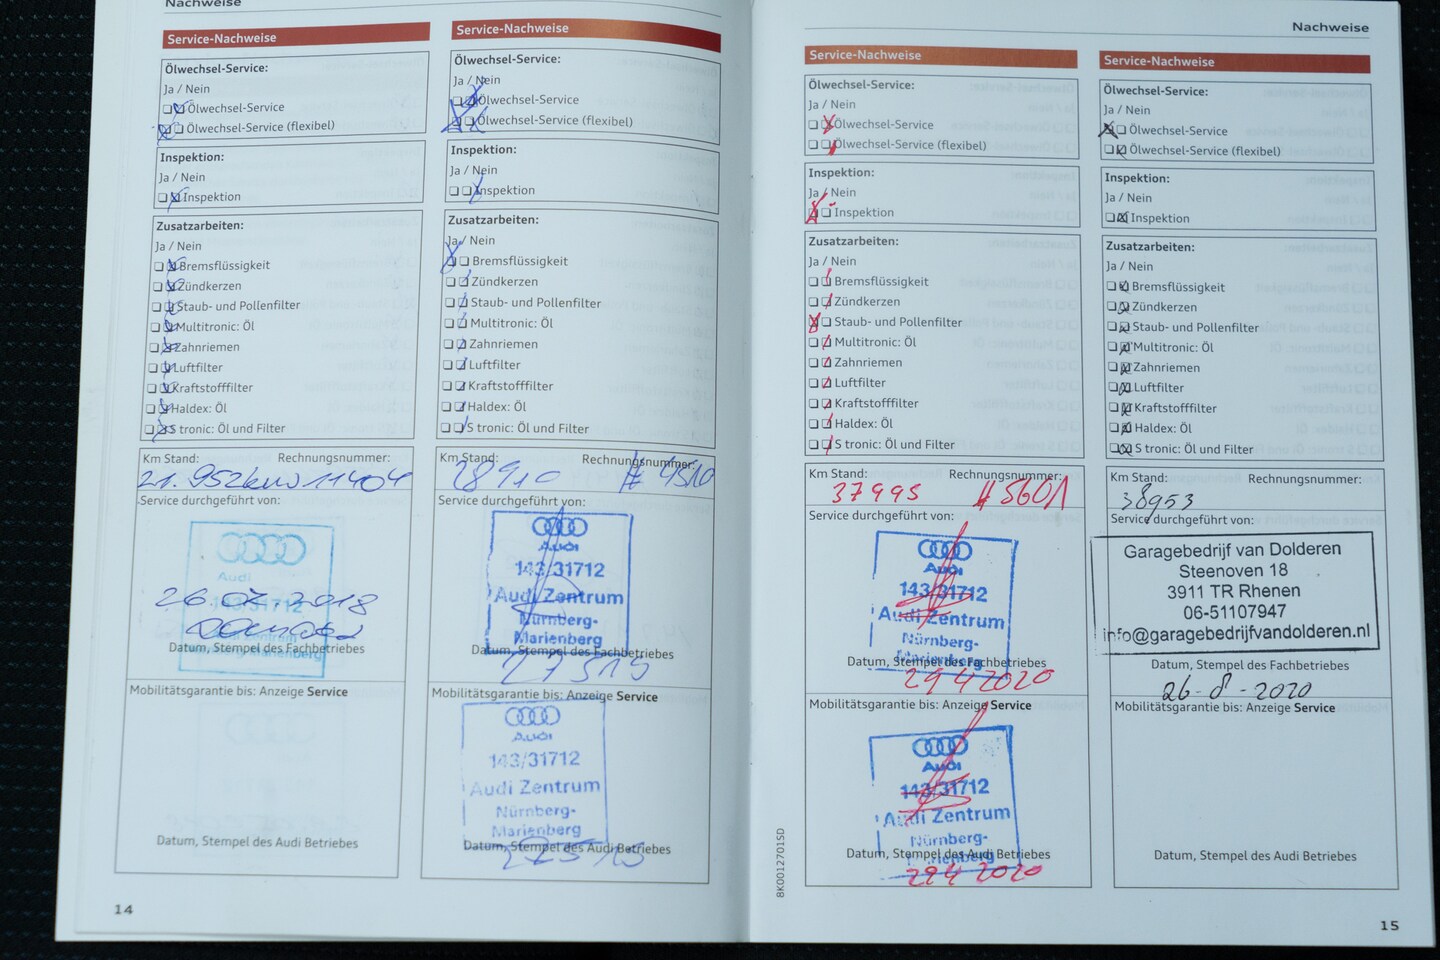 Nachweise
Service-Nachweise
Ölwechsel-Service:
Ja / Nein
Ölwechsel-Service
Ölwechsel-Service (flexibel)
Inspektion:
Ja / Nein
Inspektion
Zusatzarbeiten:
Ja / Nein
Bremsflüssigkeit
Zündkerzen
Staub- und Pollenfilter
Multitronic: Öl
Zahnriemen
Luftfilter
Kraftstofffilter
Haldex: Öl
S tronic: Öl und Filter
Km Stand: Rechnungsnummer:
21.952km 11404
Service durchgeführt von:
Audi
143/31712
26.07.2018
Audi Zentrum
Datum, Stempel des Fachbetriebes
Nürnberg-Marienberg
Mobilitätsgarantie bis: Anzeige Service
Datum, Stempel des Audi Betriebes
14
Service-Nachweise
Ölwechsel-Service:
Ja / Nein
Ölwechsel-Service
Ölwechsel-Service (flexibel)
Inspektion:
Ja / Nein
Inspektion
Zusatzarbeiten:
Ja / Nein
Bremsflüssigkeit
Zündkerzen
Staub- und Pollenfilter
Multitronic: Öl
Zahnriemen
Luftfilter
Kraftstofffilter
Haldex: Öl
S tronic: Öl und Filter
Km Stand: Rechnungsnummer:
28910 # 4510
Service durchgeführt von:
Audi
143/31712
Audi Zentrum
Nürnberg-
Marienberg
Datum, Stempel des Fachbetriebes
27519
Mobilitätsgarantie bis: Anzeige Service
Audi
143/31712
Audi Zentrum
Nürnberg-
Marienberg
Datum, Stempel des Audi Betriebes
27519
Nachweise
Service-Nachweise
Ölwechsel-Service:
Ja / Nein
Ölwechsel-Service
Ölwechsel-Service (flexibel)
Inspektion:
Ja / Nein
Inspektion
Zusatzarbeiten:
Ja / Nein
Bremsflüssigkeit
Zündkerzen
Staub- und Pollenfilter
Multitronic: Öl
Zahnriemen
Luftfilter
Kraftstofffilter
Haldex: Öl
S tronic: Öl und Filter
Km Stand: Rechnungsnummer:
37995 #5601
Service durchgeführt von:
Audi
143/31712
Audi Zentrum
Nürnberg-
Marienberg
Datum, Stempel des Fachbetriebes
29 4 2020
Mobilitätsgarantie bis: Anzeige Service
Audi
143/31712
Audi Zentrum
Nürnberg-
Marienberg
Datum, Stempel des Audi Betriebes
29 4 2020
8K0012701SD
Service-Nachweise
Ölwechsel-Service:
Ja / Nein
Ölwechsel-Service
Ölwechsel-Service (flexibel)
Inspektion:
Ja / Nein
Inspektion
Zusatzarbeiten:
Ja / Nein
Bremsflüssigkeit
Zündkerzen
Staub- und Pollenfilter
Multitronic: Öl
Zahnriemen
Luftfilter
Kraftstofffilter
Haldex: Öl
S tronic: Öl und Filter
Km Stand: Rechnungsnummer:
38953
Service durchgeführt von:
Garagebedrijf van Dolderen
Steenoven 18
3911 TR Rhenen
06-51107947
info@garagebedrijfvandolderen.nl
Datum, Stempel des Fachbetriebes
26-8-2020
Mobilitätsgarantie bis: Anzeige Service
Datum, Stempel des Audi Betriebes
15